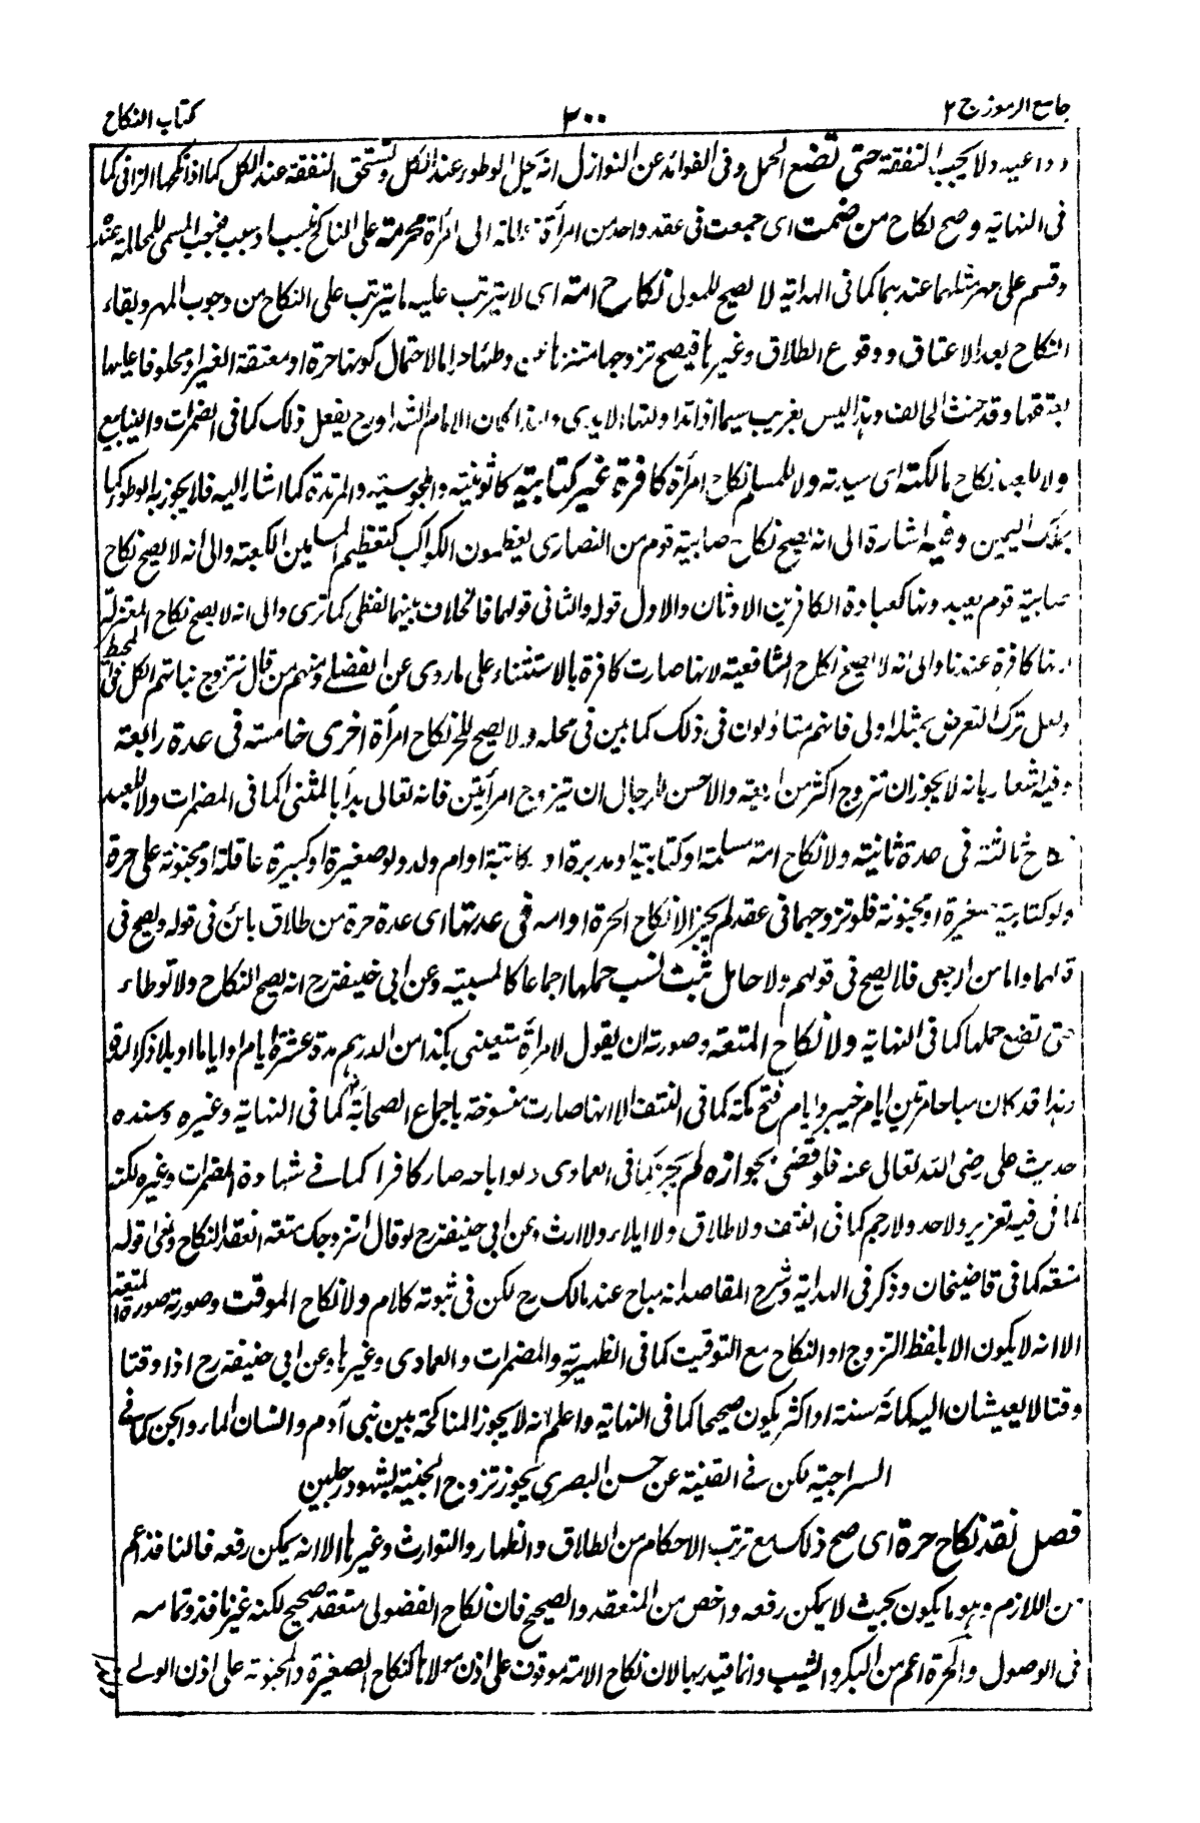 جامع الرموز ج ٢
٣٠٠
كتاب النكاح
ودواعيه ولا يجب النفقة حتى تضع الحمل وفى الفوائد عن النوازل انه يحل الوطؤ عند الكل وتستحق النفقة عند الكل كما اذا نكحها الزانى كما
فى النهاية وصح نكاح من ضمت اى جمعت فى عقد واحد من امرأة الى امرأة محرمة على الناكح بنسب او سبب فيجب المسمى للمحللة عنده
وقسم على مهر مثلهما عندهما كما فى الهداية لا يصح للمولى نكاح امته اى لا يترتب عليه ما يترتب على النكاح من وجوب المهر وبقاء
النكاح بعد الاعتاق ووقوع الطلاق وغيرها فيصح تزوجها متنزها عن وطئها حراما لاحتمال كونها حرة او معتقة الغير او محلوفا عليها
بعتقها وقد حنث الحالف وهذا ليس بغريب سيما اذا تداولتها الايدى ولهذا كان الامام الشداد رح يفعل ذلك كما فى المضمرات والينابيع
ولا للعبد نكاح مالكته اى سيدته ولا للمسلم نكاح امرأة كافرة غير كتابية كالوثنية والمجوسية والمرتدة كما اشار اليه فلا يجوز بالوطؤ كما
بملك اليمين وفيه اشارة الى انه يصح نكاح صابية قوم من النصارى يعظمون الكواكب كتعظيم المسلمين الكعبة والى انه لا يصح نكاح
صابية قوم يعبدونها كعبادة الكافرين الاوثان والاول قوله والثانى قولهما فالخلاف بينهما لفظى كما ترى والى انه لا يصح نكاح المعتزلة
لانها كافرة عندنا والى انه لا يصح نكاح الشافعية لانها صارت كافرة بالاستثناء على ما روى عن الفضلى ومنهم من قال نتزوج بناتهم الكل فى المحيط
ولعل ترك التعرض بمثله اولى فانهم متأولون فى ذلك كما بين فى محله ولا يصح للحر نكاح امرأة اخرى خامسة فى عدة رابعة
وفيه اشعار بانه لا يجوز ان تزوج اكثر من اربعة والاحسن للرجال ان يتزوج امرأتين فانه تعالى بدأ بالمثنى كما فى المضمرات ولا للعبد
نكاح ثالثة فى عدة ثانية ولا نكاح امة مسلمة او كتابية او مدبرة او مكاتبة او ام ولد ولو صغيرة او كبيرة عاقلة او مجنونة على حرة
ولو كتابية صغيرة او مجنونة فلو تزوجهما فى عقد لم يجز الا نكاح الحرة او امة فى عدتها اى عدة حرة من طلاق بائن فى قوله ويصح فى
قولهما واما من الرجعى فلا يصح فى قولهم ولا حامل ثبت نسب حملها اجماعا كالمسبية وعن ابى حنيفة رح انه يصح النكاح ولا توطاء
حتى تضع حملها كما فى النهاية ولا نكاح المتعة وصورته ان يقول لامرأة متعينى بكذا من الدرهم مدة عشرة ايام او اياما او بلا ذكر الوقت
وهذا قد كان مباحا مرتين ايام خيبر وايام فتح مكة كما فى النتف الا انها صارت منسوخة باجماع الصحابة رضهم كما فى النهاية وغيره وسنده
حديث على رضى الله تعالى عنه فلو قضى بجوازه لم يجز كما فى العمادى ولو اباحه صار كافرا كما فى شهادة المضمرات وغيره لكنه
فيه تعزير ولا حد ولا رجم كما فى النتف ولا طلاق ولا ايلاء ولا ارث وعن ابى حنيفة رح لو قال اتزوجك متعة انعقد النكاح ولغى قوله
متعة كما فى قاضيخان وذكر فى الهداية وشرح المقاصد انه مباح عند مالك رح لكن فى ثبوته كلام ولا نكاح الموقت وصورته صورة المتعة
الا انه لا يكون الا بلفظ التزوج او النكاح مع التوقيت كما فى الظهيرية والمضمرات والعمادى وغيرها وعن ابى حنيفة رح اذا وقتا
وقتا لا يعيشان اليه كمائة سنة او اكثر يكون صحيحا كما فى النهاية واعلم انه لا يجوز المناكحة بين بنى آدم وانسان الماء والجن كما فى
السراجية لكن فى القنية عن حسن البصرى يجوز تزوج الجنية بشهود رجلين
فصل نفذ نكاح حرة اى صح ذلك مع ترتب الاحكام من الطلاق والظهار والتوارث وغيرها الا انه يمكن رفعه فالنافذ اعم
من اللازم وهو ما يكون بحيث لا يمكن رفعه واخص من المنعقد والصحيح فان نكاح الفضولى منعقد صحيح لكنه غير نافذ وتمامه
فى الوصول والحرة اعم من البكر والثيب وانما قيد بها لان نكاح الامة موقوف على اذن مولاها كنكاح الصغيرة والمجنونة على اذن الولى